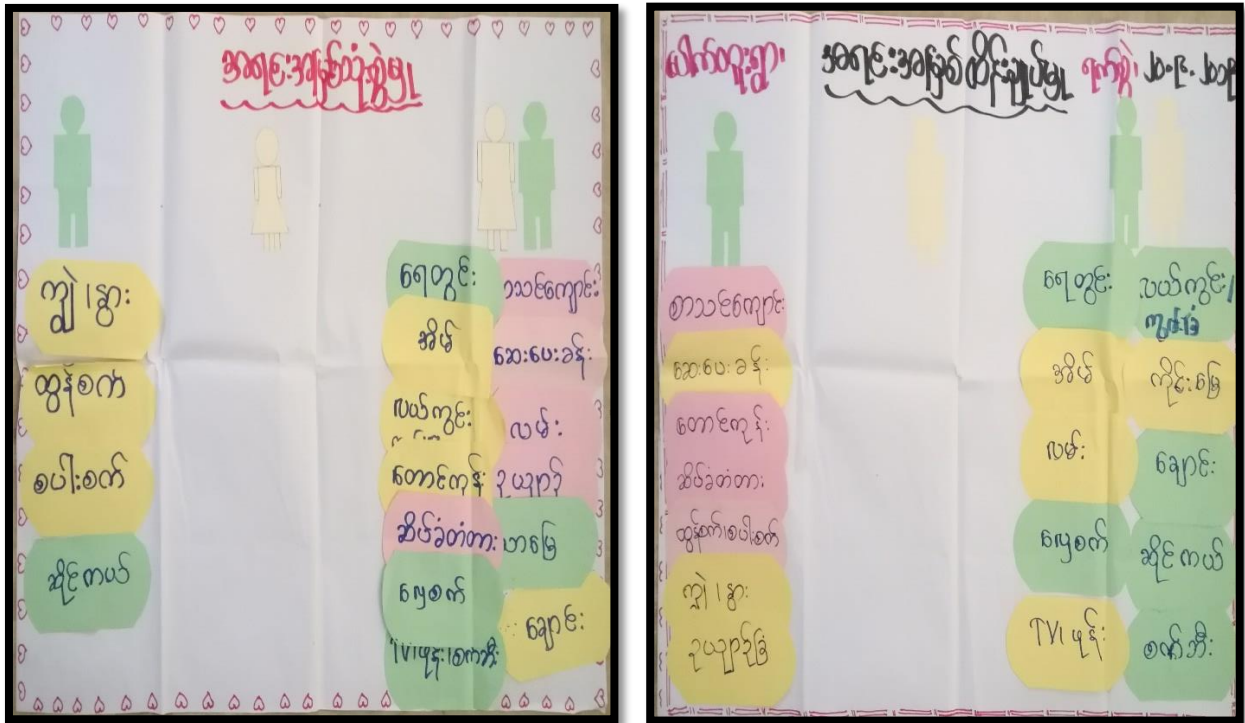 အရင်းအမြစ်သုံးစွဲမှု
ကျွဲ ၊ နွား
ထွန်စက်
စပါးစက်
ဆိုင်ကယ်
ရေတွင်း
အိမ်
လယ်ကွင်း
တောင်ကုန်း
ဆိပ်ခံတံတား
လှေစက်
TV၊ ဖုန်း ၊ စက်ဘီး
စာသင်ကျောင်း
ဆေးပေးခန်း
လမ်း
ဥယျာဉ်
ချောင်း
အရင်းအမြစ်ထိန်းချုပ်မှု
ရက်စွဲ၊
စာသင်ကျောင်း
ဆေးပေးခန်း
တောင်ကုန်း
ဆိပ်ခံတံတား
ထွန်စက်၊ စပါးစက်
ကျွဲ ၊ နွား
ဥယျာဉ်ခြံ
ရေတွင်း
အိမ်
လမ်း
လှေစက်
TV၊ ဖုန်း
လယ်ကွင်း/
ကိုင်းမြေ
ချောင်း
ဆိုင်ကယ်
စက်ဘီး